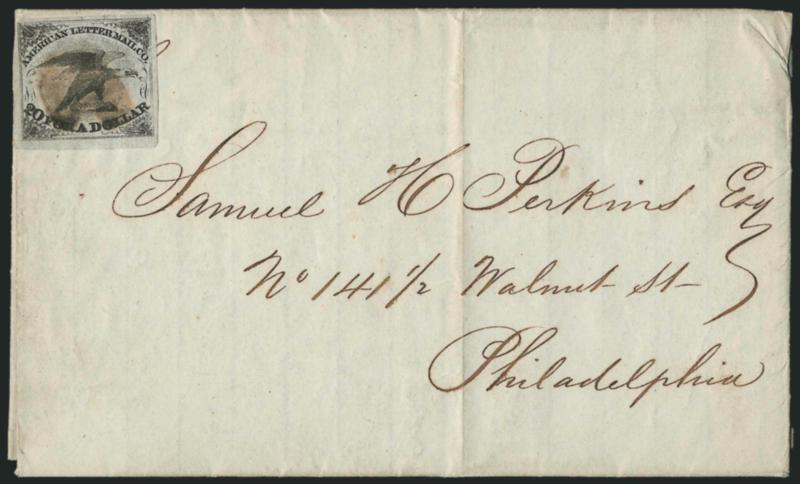 AMERICAN LETTER MAIL CO.
20 FOR A DOLLAR
Samuel H Perkins Esq
No 141 1/2 Walnut St
Philadelphia